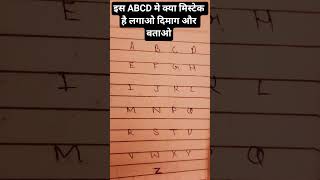 इस ABCD मे क्या मिस्टेक
है लगाओ दिमाग और
बताओ
A B C D
E F G H
I J K L
M N P Q
R S T U
V W X Y
Z